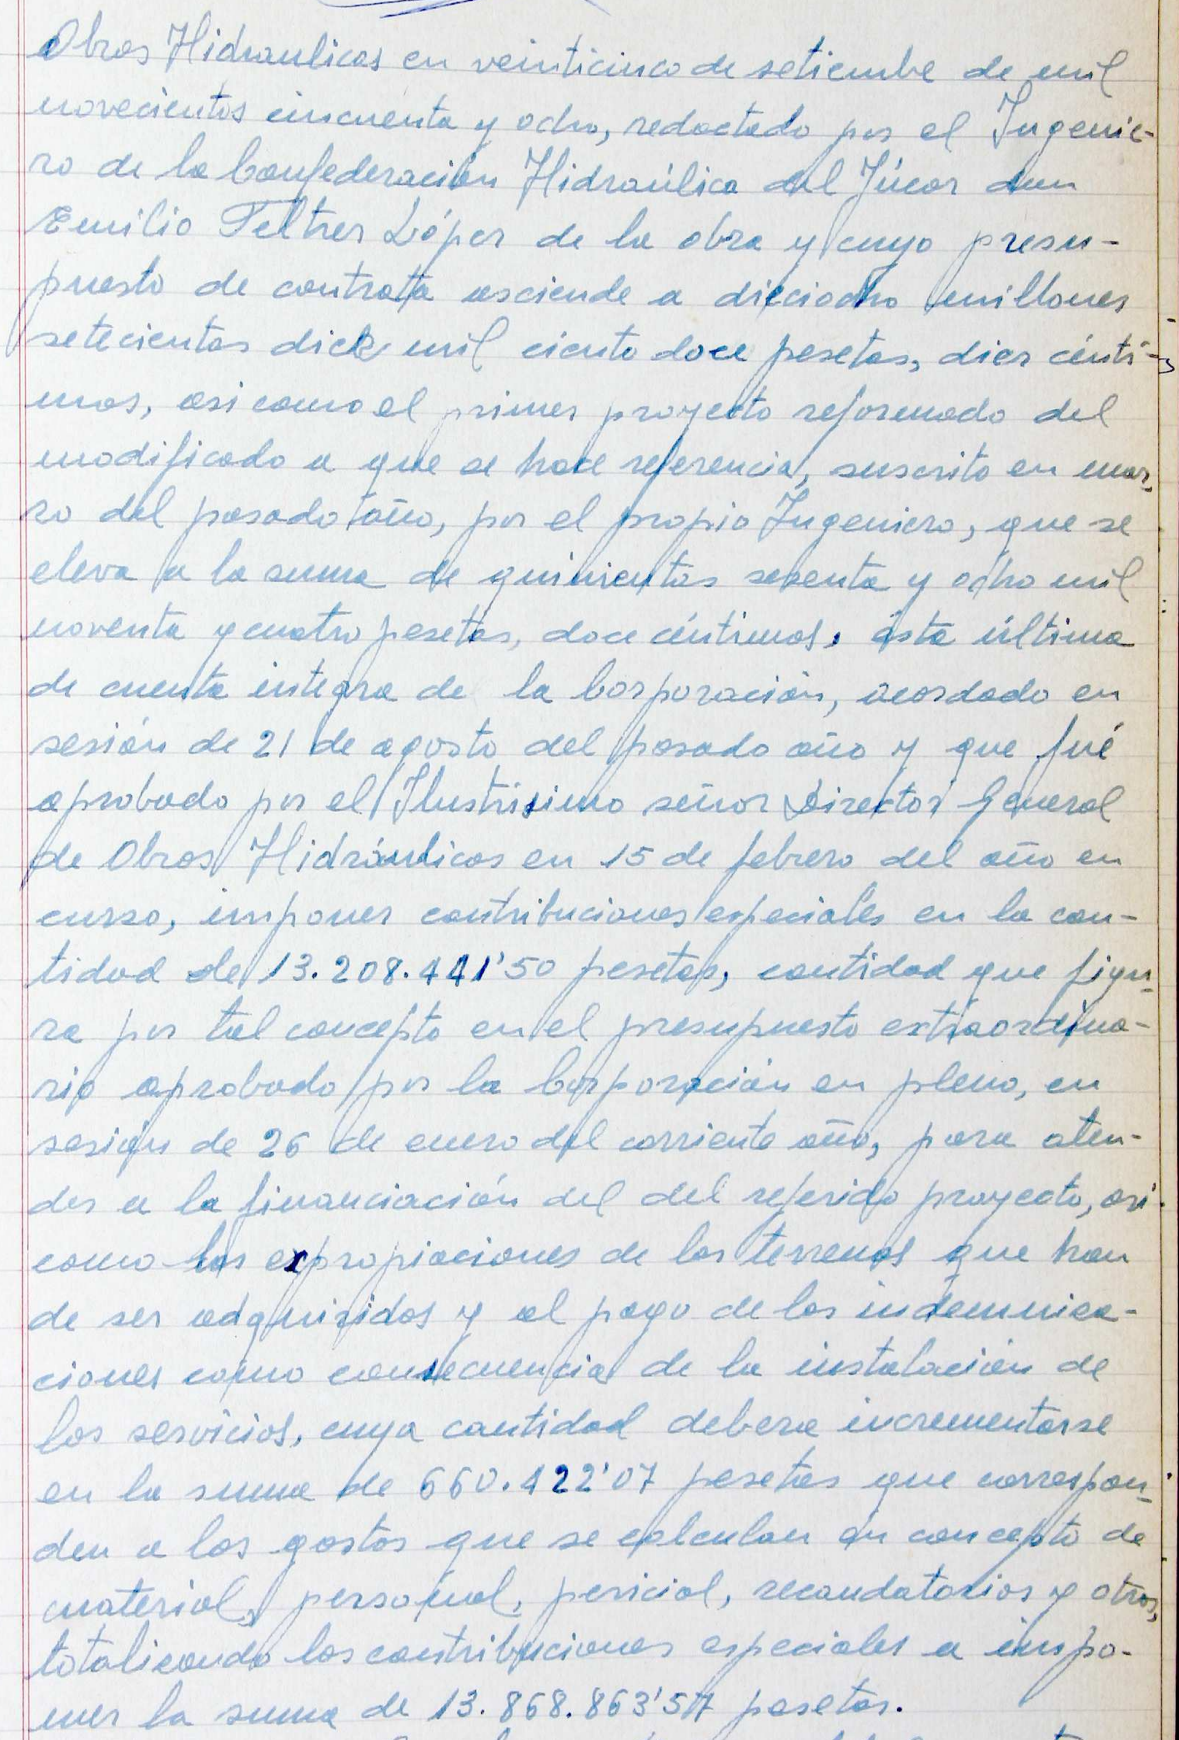 Obras Hidraulicas en veinticinco de setiembre de mil
novecientos cincuenta y ocho, redactado por el Ingenie-
ro de la Confederación Hidraúlica del Júcar don
Emilio Feltrer López de la obra y cuyo presu-
puesto de contrata asciende a dieciocho millones
setecientas diez mil ciento doce pesetas, diez cénti-
mos, asi como el primer proyecto reformado del
modificado a que se hace referencia, suscrito en mar-
zo del pasado año, por el propio Ingeniero, que se
eleva a la suma de quinientas sesenta y ocho mil
noventa y cuatro pesetas, doce céntimos, ésta última
de cuenta integra de la Corporación, acordado en
sesión de 21 de agosto del pasado año y que fué
aprobado por el Ilustrisimo señor Director General
de Obras Hidráulicas en 15 de febrero del año en
curso, imponer contribuciones especiales en la can-
tidad de 13.208.441'50 pesetas, cantidad que figu-
ra por tal concepto en el presupuesto extraordina-
rio aprobado por la Corporación en pleno, en
sesión de 26 de enero del corriente año, para aten-
der a la financiación del del referido proyecto, asi
como las expropiaciones de los terrenos que han
de ser adquiridos y al pago de las indemniza-
ciones como consecuencia de la instalación de
los servicios, cuya cantidad debera incrementarse
en la suma de 660.422'07 pesetas que correspon-
den a los gastos que se calculan en concepto de
material, personal, pericial, recaudatorios y otros,
totalizando las contribuciones especiales a impo-
ner la suma de 13.868.863'57 pesetas.